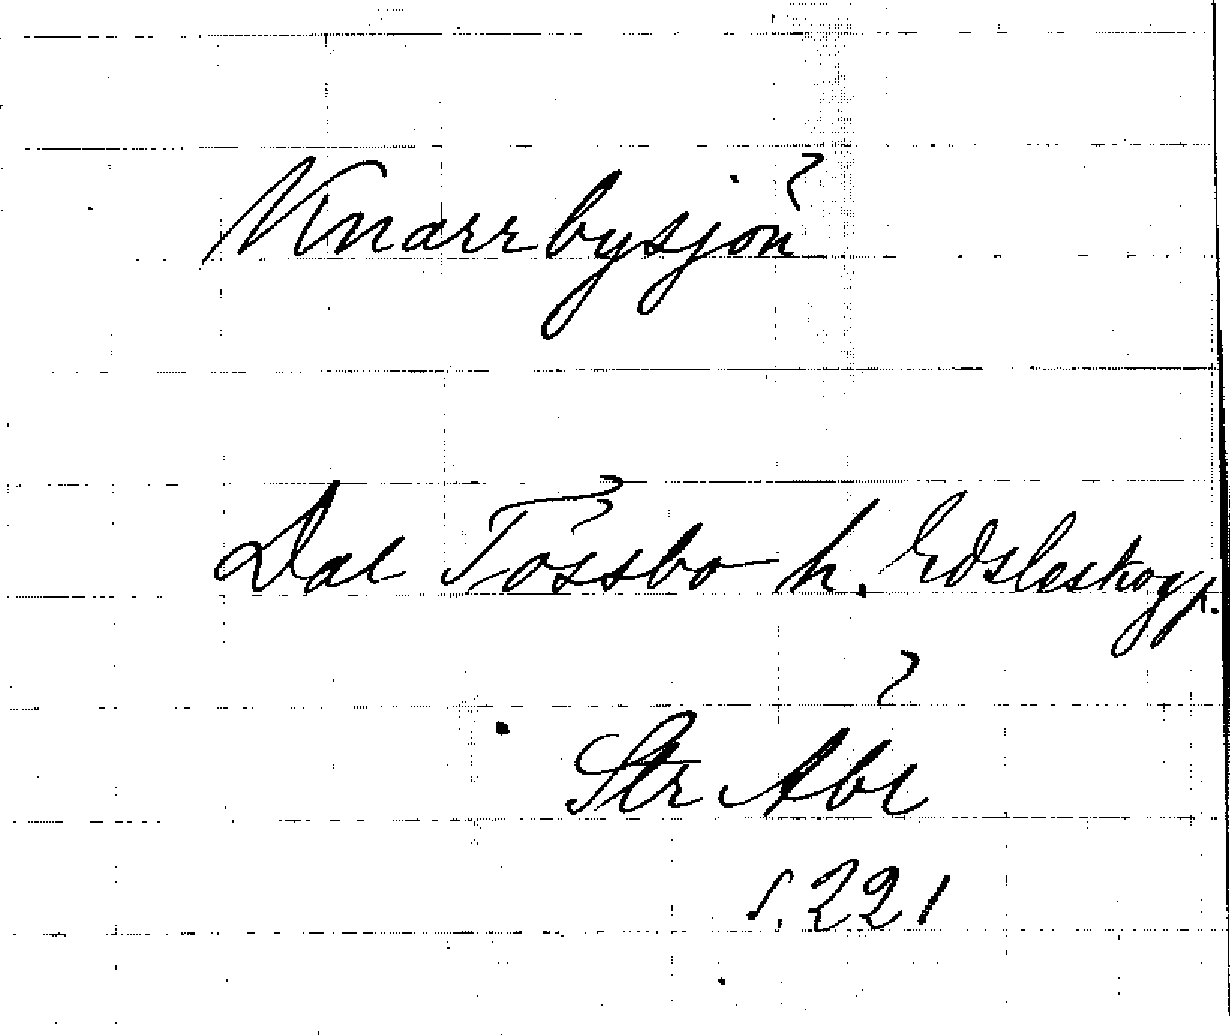 Knarrbysjön
Dal Tössbo h. Edsleskog p.
Str Åbl
s. 221